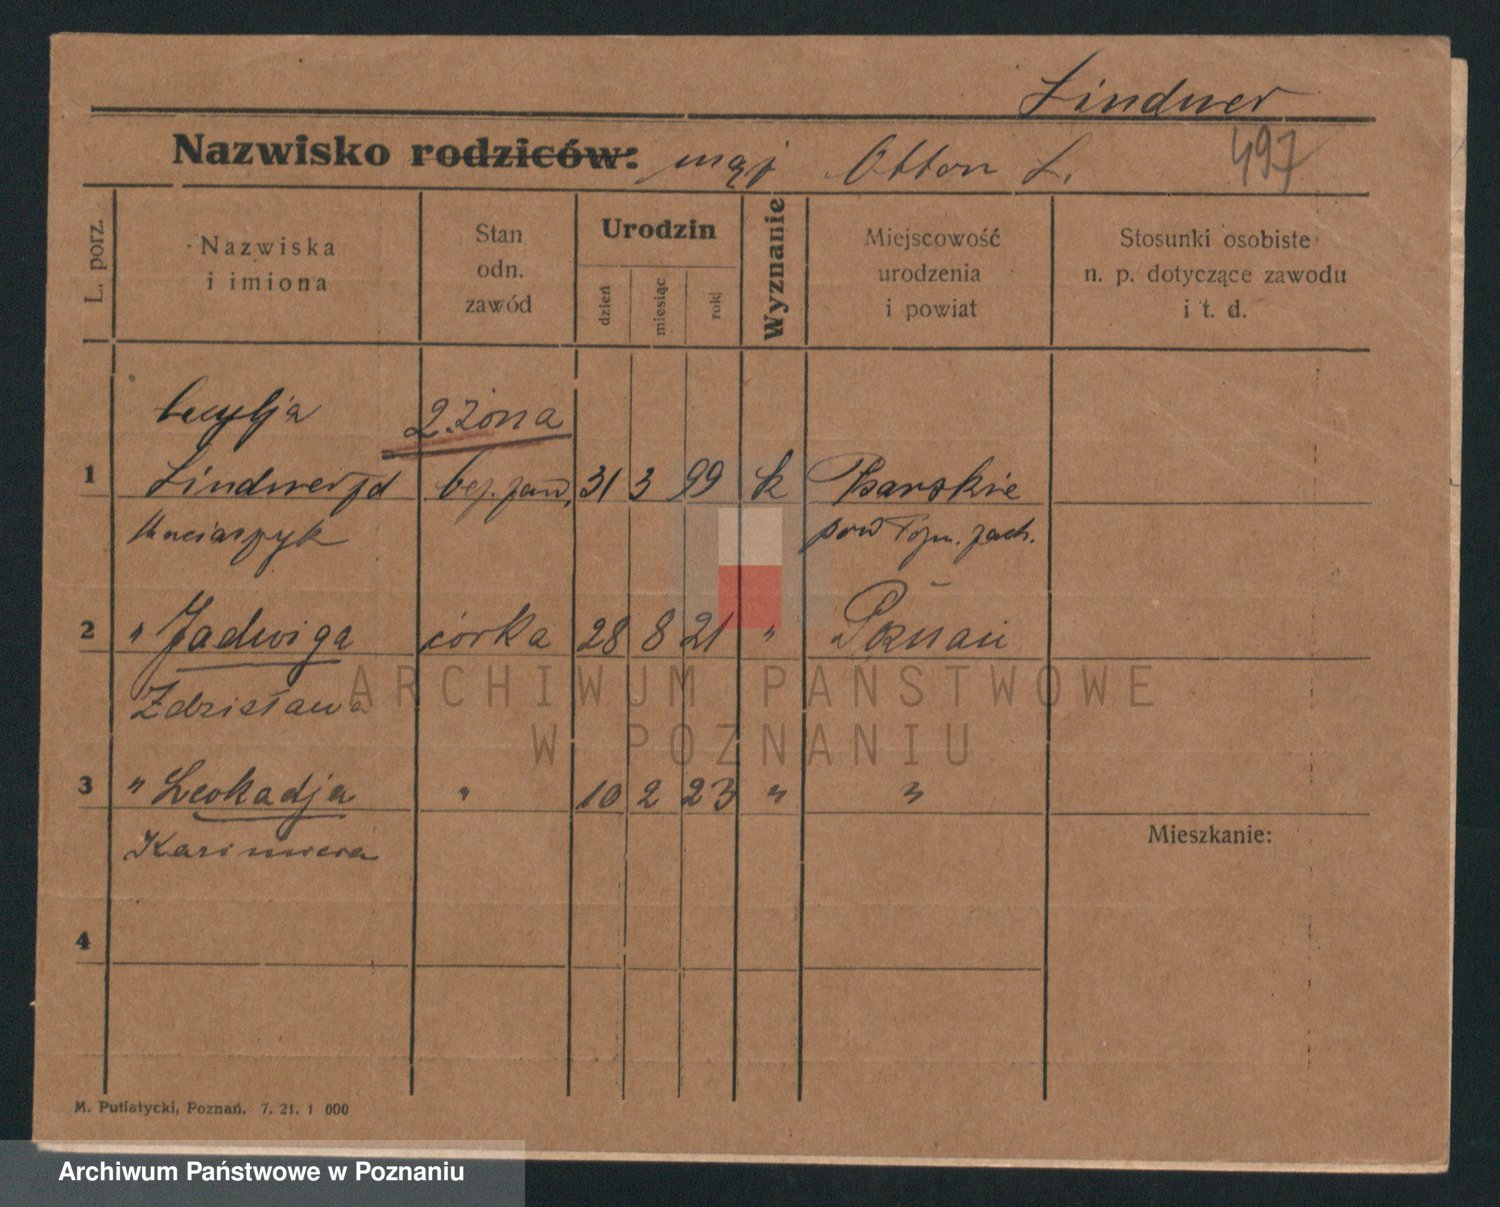 Lindner
Nazwisko rodziców: mąż Otton L. 497
L. porz.
Nazwiska
i imiona
Stan
odn.
zawód
Urodzin
dzień
miesiąc
rok
Wyznanie
Miejscowość
urodzenia
i powiat
Stosunki osobiste
n. p. dotyczące zawodu
i t. d.
Cecylja 2. żona
1 Lindner zd bez. zaw. 31 3 99 k Psarskie
Maciaszyk pow Pozn. zach.
2 " Jadwiga córka 28 8 21 " Poznań
Zdzisława
ARCHIWUM PAŃSTWOWE
W POZNANIU
3 " Leokadja " 10 2 23 " "
Mieszkanie:
Kazimiera
4
M. Putiatycki, Poznań. 7. 21. 1 000
Archiwum Państwowe w Poznaniu